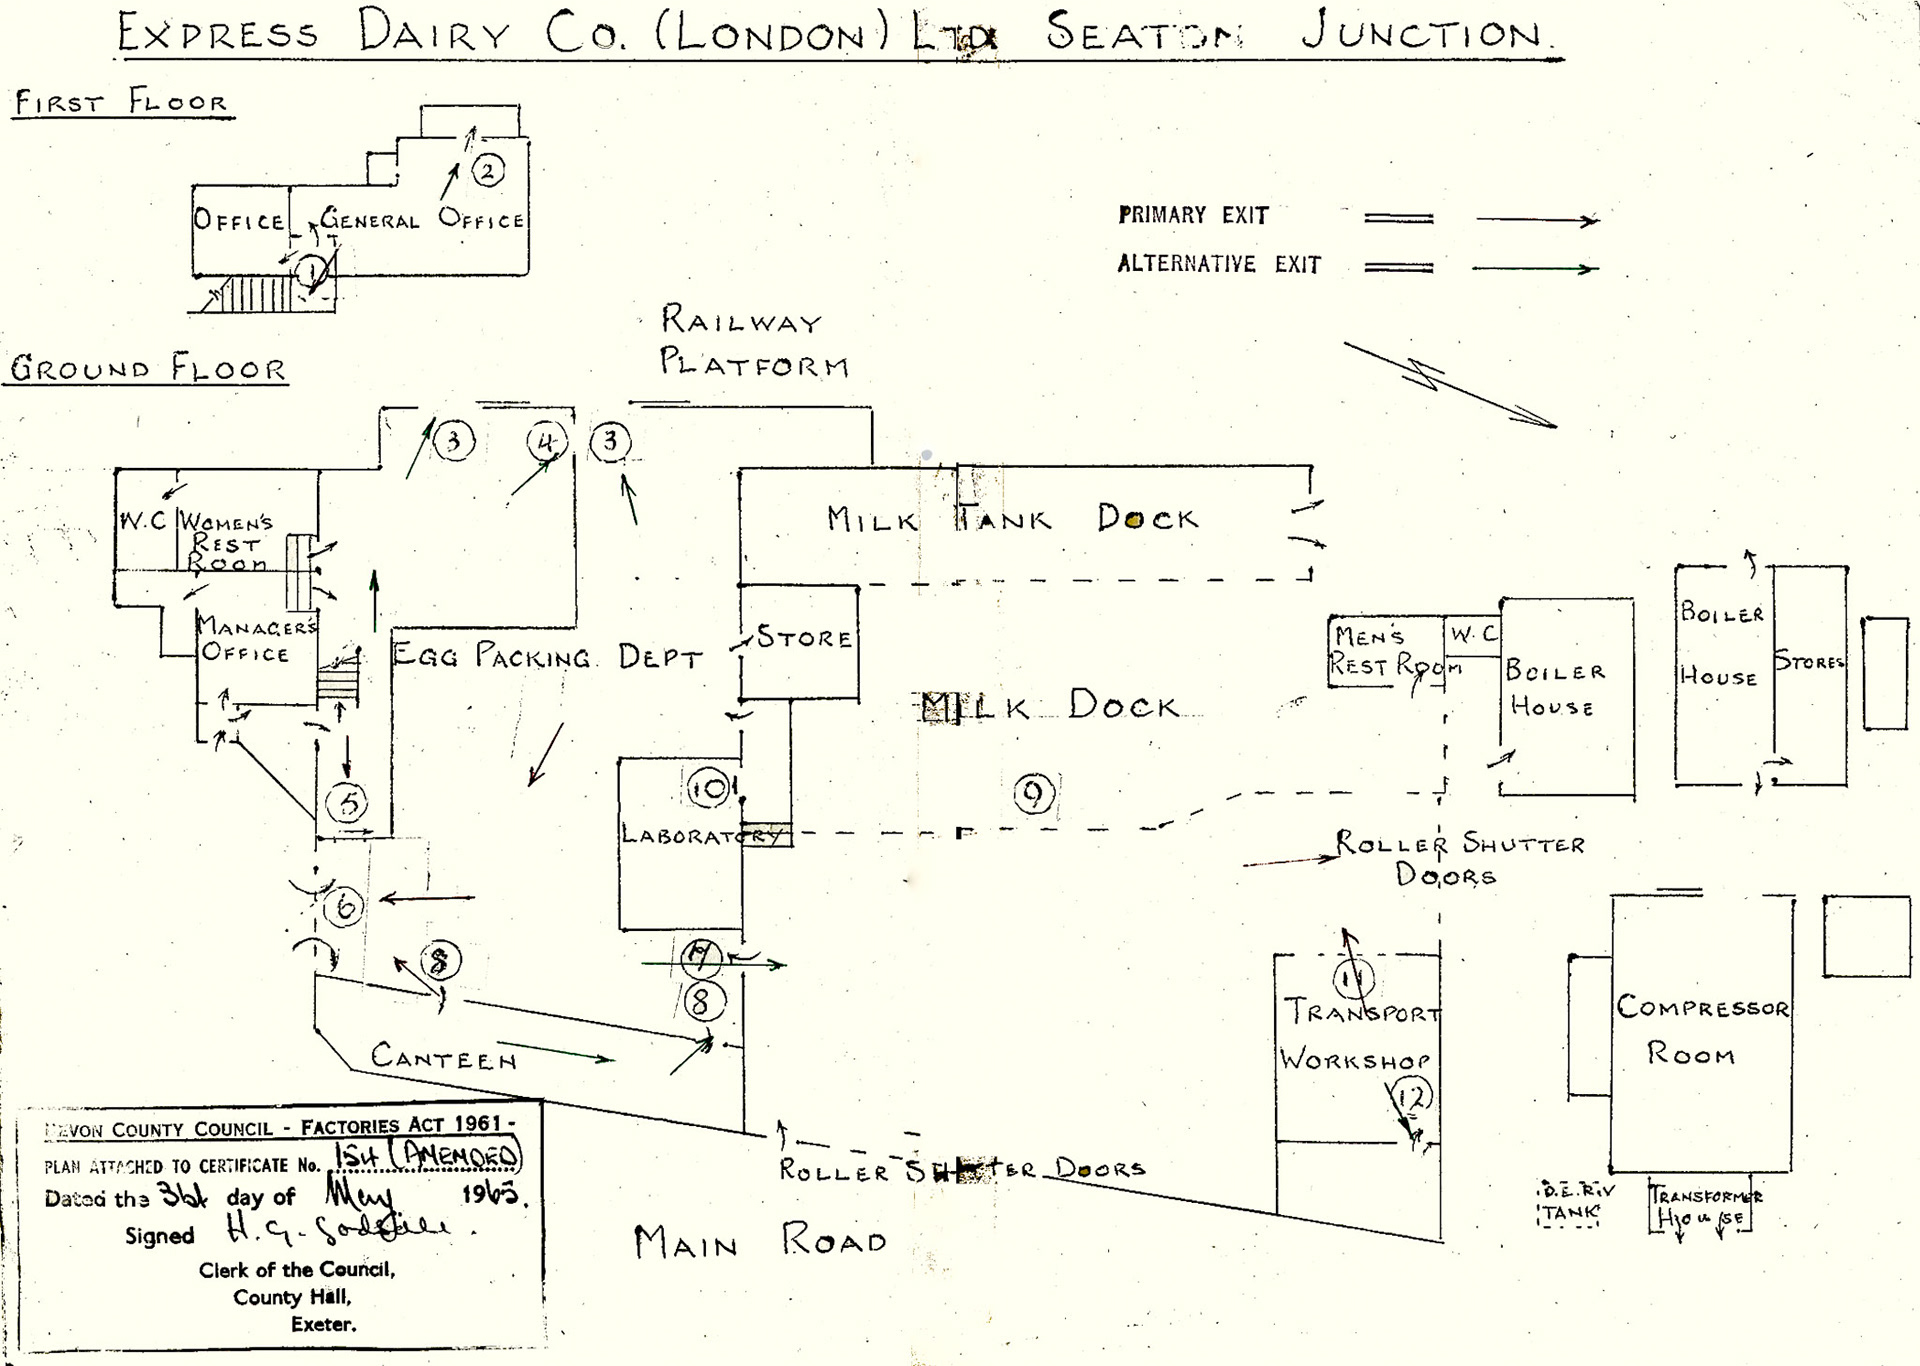 EXPRESS DAIRY CO. (LONDON) LTD. SEATON JUNCTION.
FIRST FLOOR
2
OFFICE
GENERAL OFFICE
1
PRIMARY EXIT
ALTERNATIVE EXIT
RAILWAY
PLATFORM
GROUND FLOOR
3
4
3
W.C
WOMEN'S
REST
ROOM
MILK TANK DOCK
MANAGER'S
OFFICE
EGG PACKING DEPT
STORE
MILK DOCK
MEN'S
REST ROOM
W.C
BOILER
HOUSE
BOILER
HOUSE
STORES
5
10
9
LABORATORY
ROLLER SHUTTER
DOORS
6
8
8
11
TRANSPORT
WORKSHOP
12
COMPRESSOR
ROOM
CANTEEN
ROLLER SHUTTER DOORS
MAIN ROAD
TANK
TRANSFORMER
HOUSE
DEVON COUNTY COUNCIL - FACTORIES ACT 1961 -
PLAN ATTACHED TO CERTIFICATE No. 154 (AMENDED)
Dated the 31st day of May 1965.
Signed H. G.
Clerk of the Council,
County Hall,
Exeter.